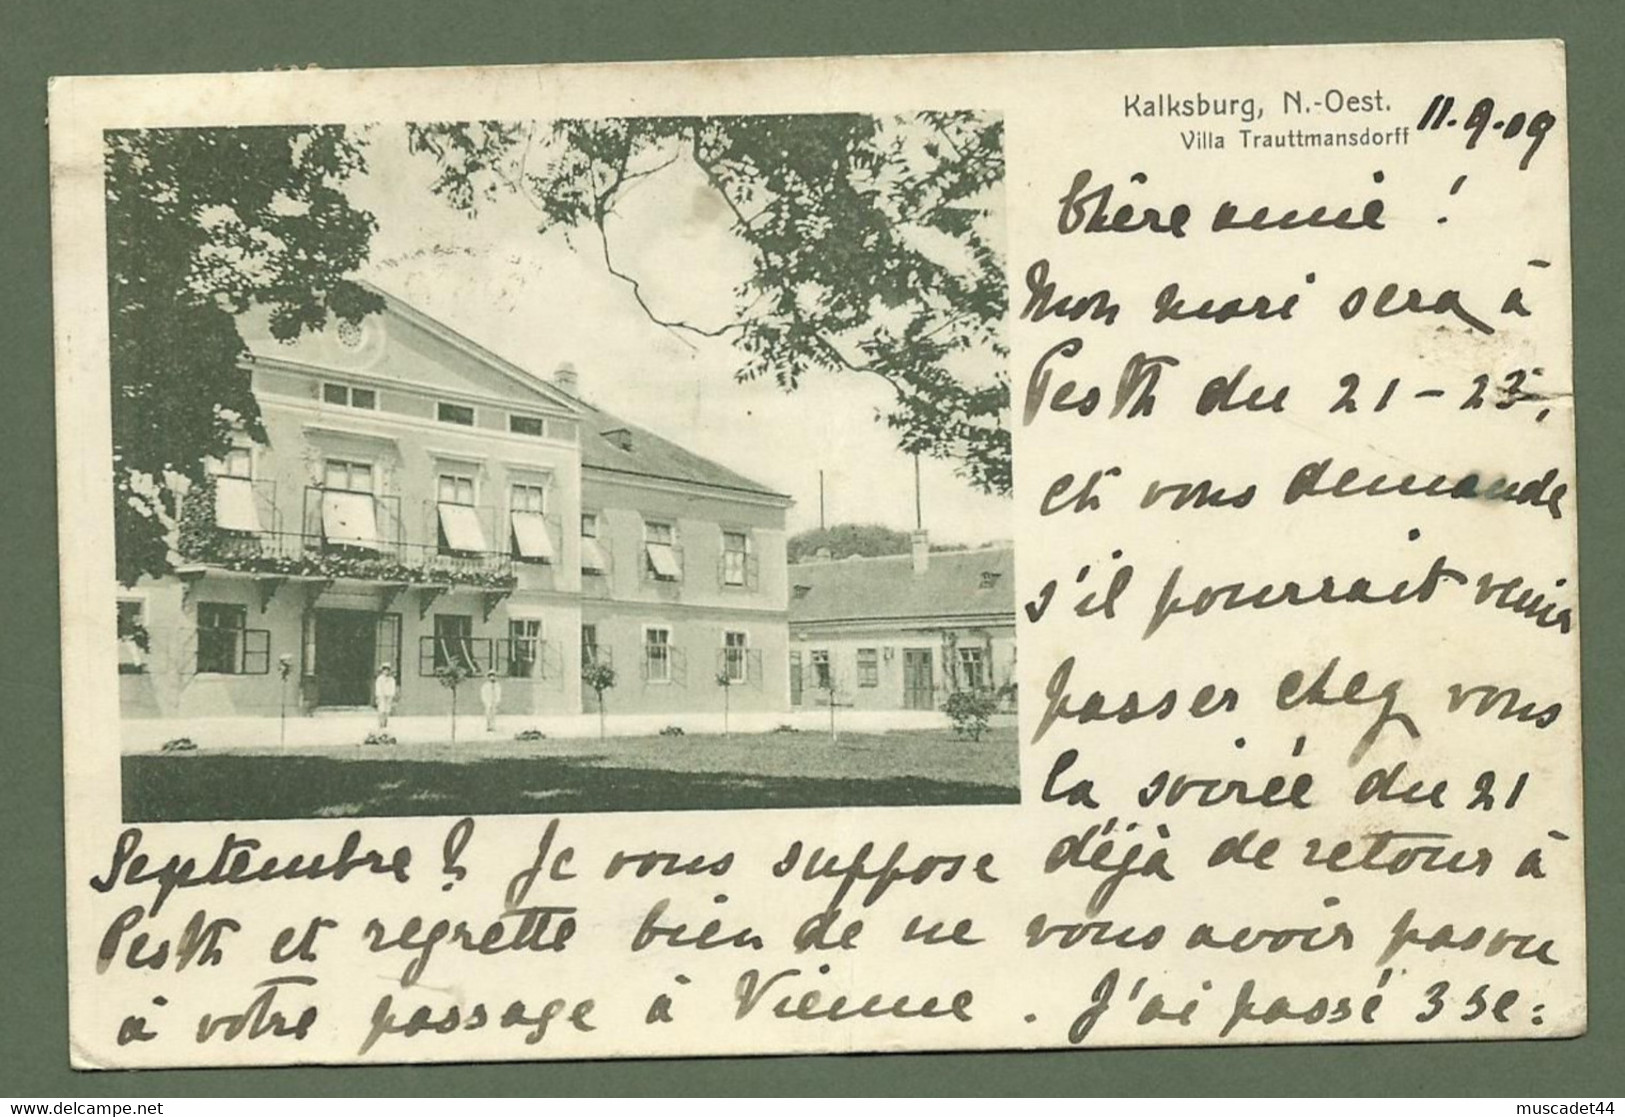 Kalksburg, N.-Oest.
Villa Trauttmansdorff
11.9.09
Chère amie !
Mon mari sera à
Pesth du 21-23,
et vous demande
s'il pourrait venir
passer chez vous
la soirée du 21
Septembre ? Je vous suppose déjà de retour à
Pesth et regrette bien de ne vous avoir pas vu
à votre passage à Vienne . J'ai passé 3 se:
www.delcampe.net
muscadet44